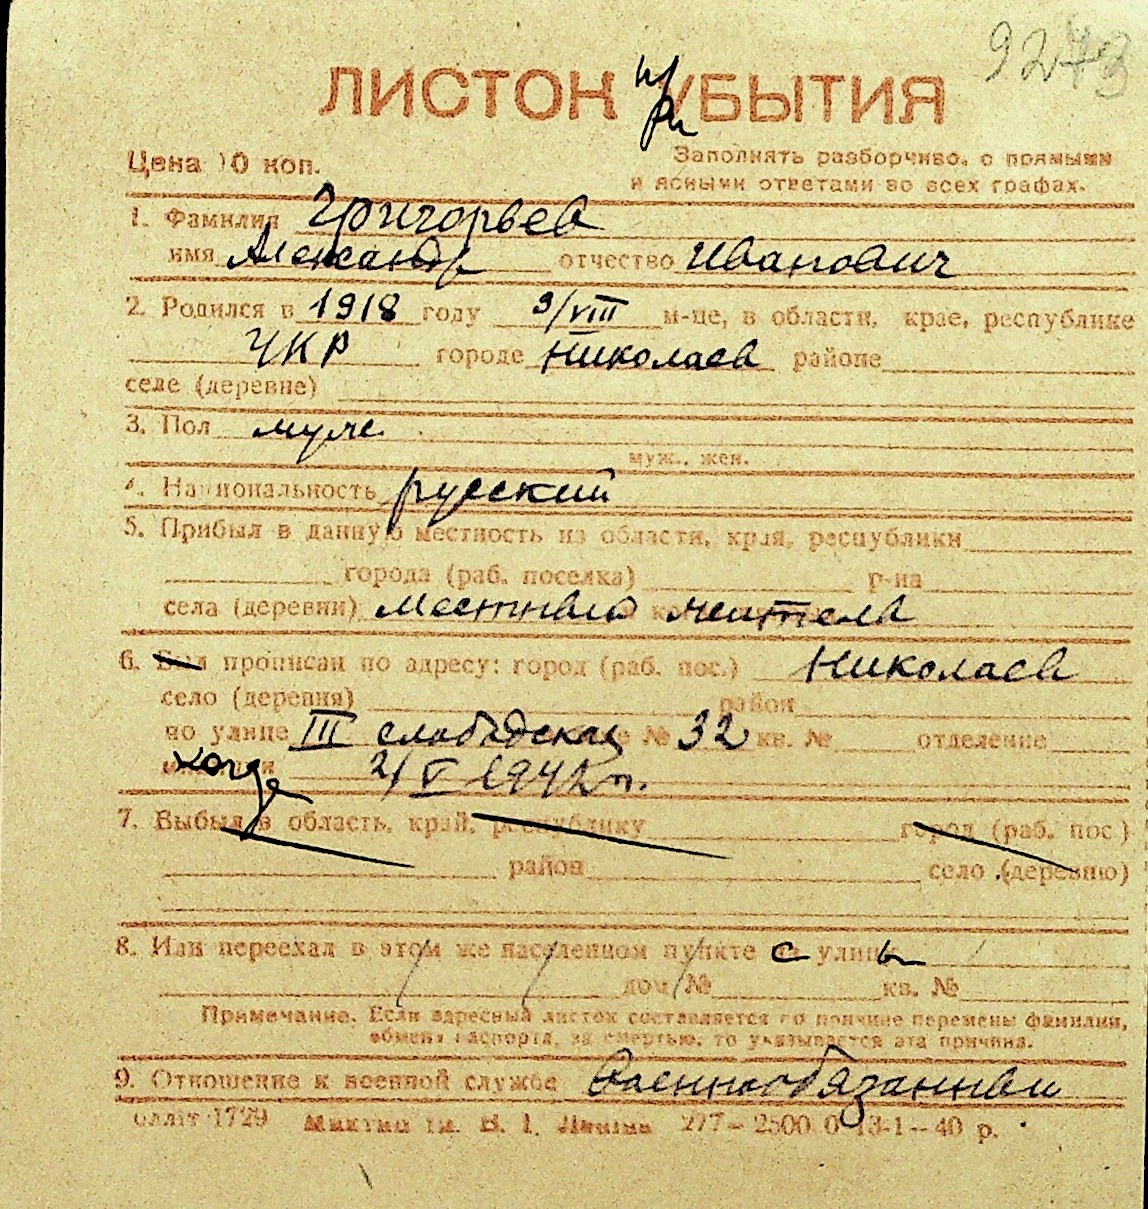 9273
ЛИСТОК при УБЫТИЯ
Цена 10 коп.
Заполнять разборчиво, с прямыми
и ясными ответами во всех графах.
1. Фамилия Григорьев
имя Александр отчество Иванович
2. Родился в 1918 году 9/VIII м-це, в области, крае, республике
УКР городе Николаев районе
селе (деревне)
3. Пол муж.
муж., жен.
4. Национальность русский
5. Прибыл в данную местность из области, края, республики
города (раб. поселка) р-на
села (деревни) местный житель
6. Был прописан по адресу: город (раб. пос.) Николаев
село (деревня) район
по улице III слободская № 32 кв. № отделение
когда 2/V 1942 г.
7. Выбыл в область, край, республику город (раб. пос.)
район село (деревню)
8. Или переехал в этом же населенном пункте с улицы
дом № кв. №
Примечание. Если адресный листок составляется по причине перемены фамилии,
обмена паспорта, за смертью, то указывается эта причина.
9. Отношение к военной службе Военнообязанный
1729 им. В. І. Леніна 277—2500 0 13-1—40 р.